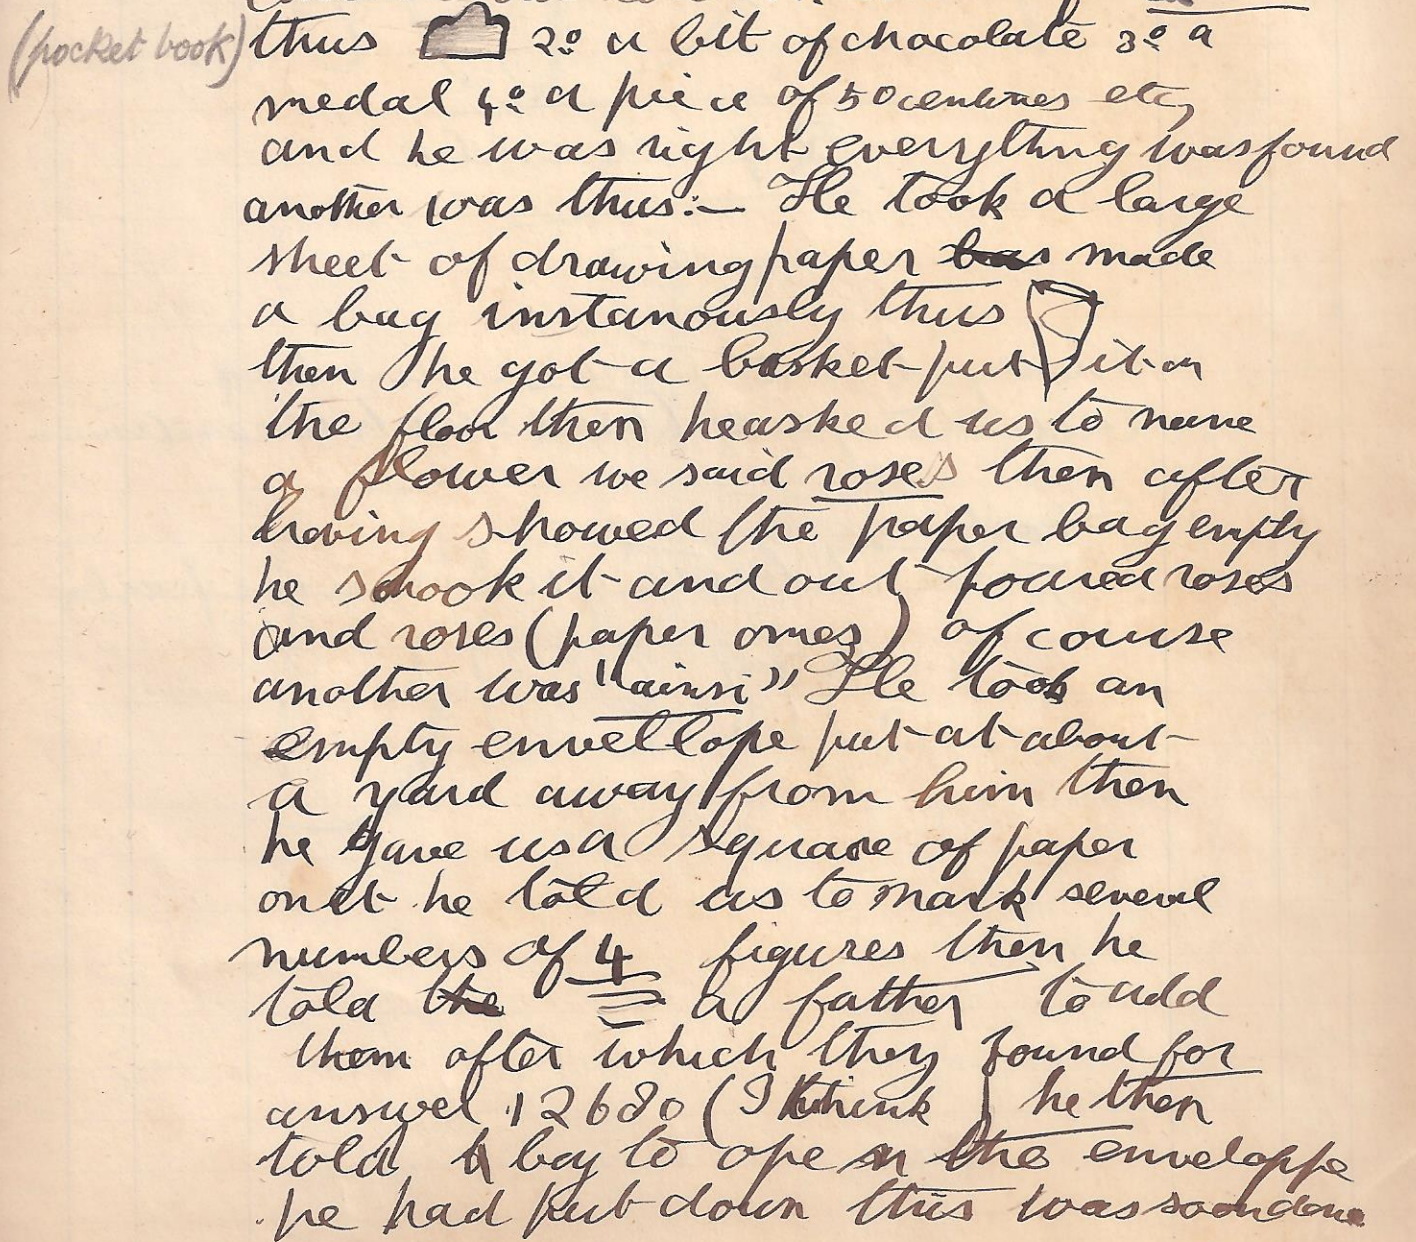 (pocket book) thus 2º a bit of chocolate 3º a
medal 4º a piece of 50 centimes etc,
and he was right everything was found
another was thus:— He took a large
sheet of drawing paper has made
a bag instanously thus
then he got a basket put it on
the floor then he asked us to name
a flower we said roses then after
having showed the paper bag empty
he shook it and out poured roses
and roses (paper ones) of course
another was "ainsi" He took an
empty envellope put at about
a yard away from him then
he gave us a square of paper
on it he told us to mark several
numbers of 4 figures then he
told the a father to add
them after which they found for
answer 12680 (I think) he then
told a boy to open the enveloppe
he had put down this was soon done